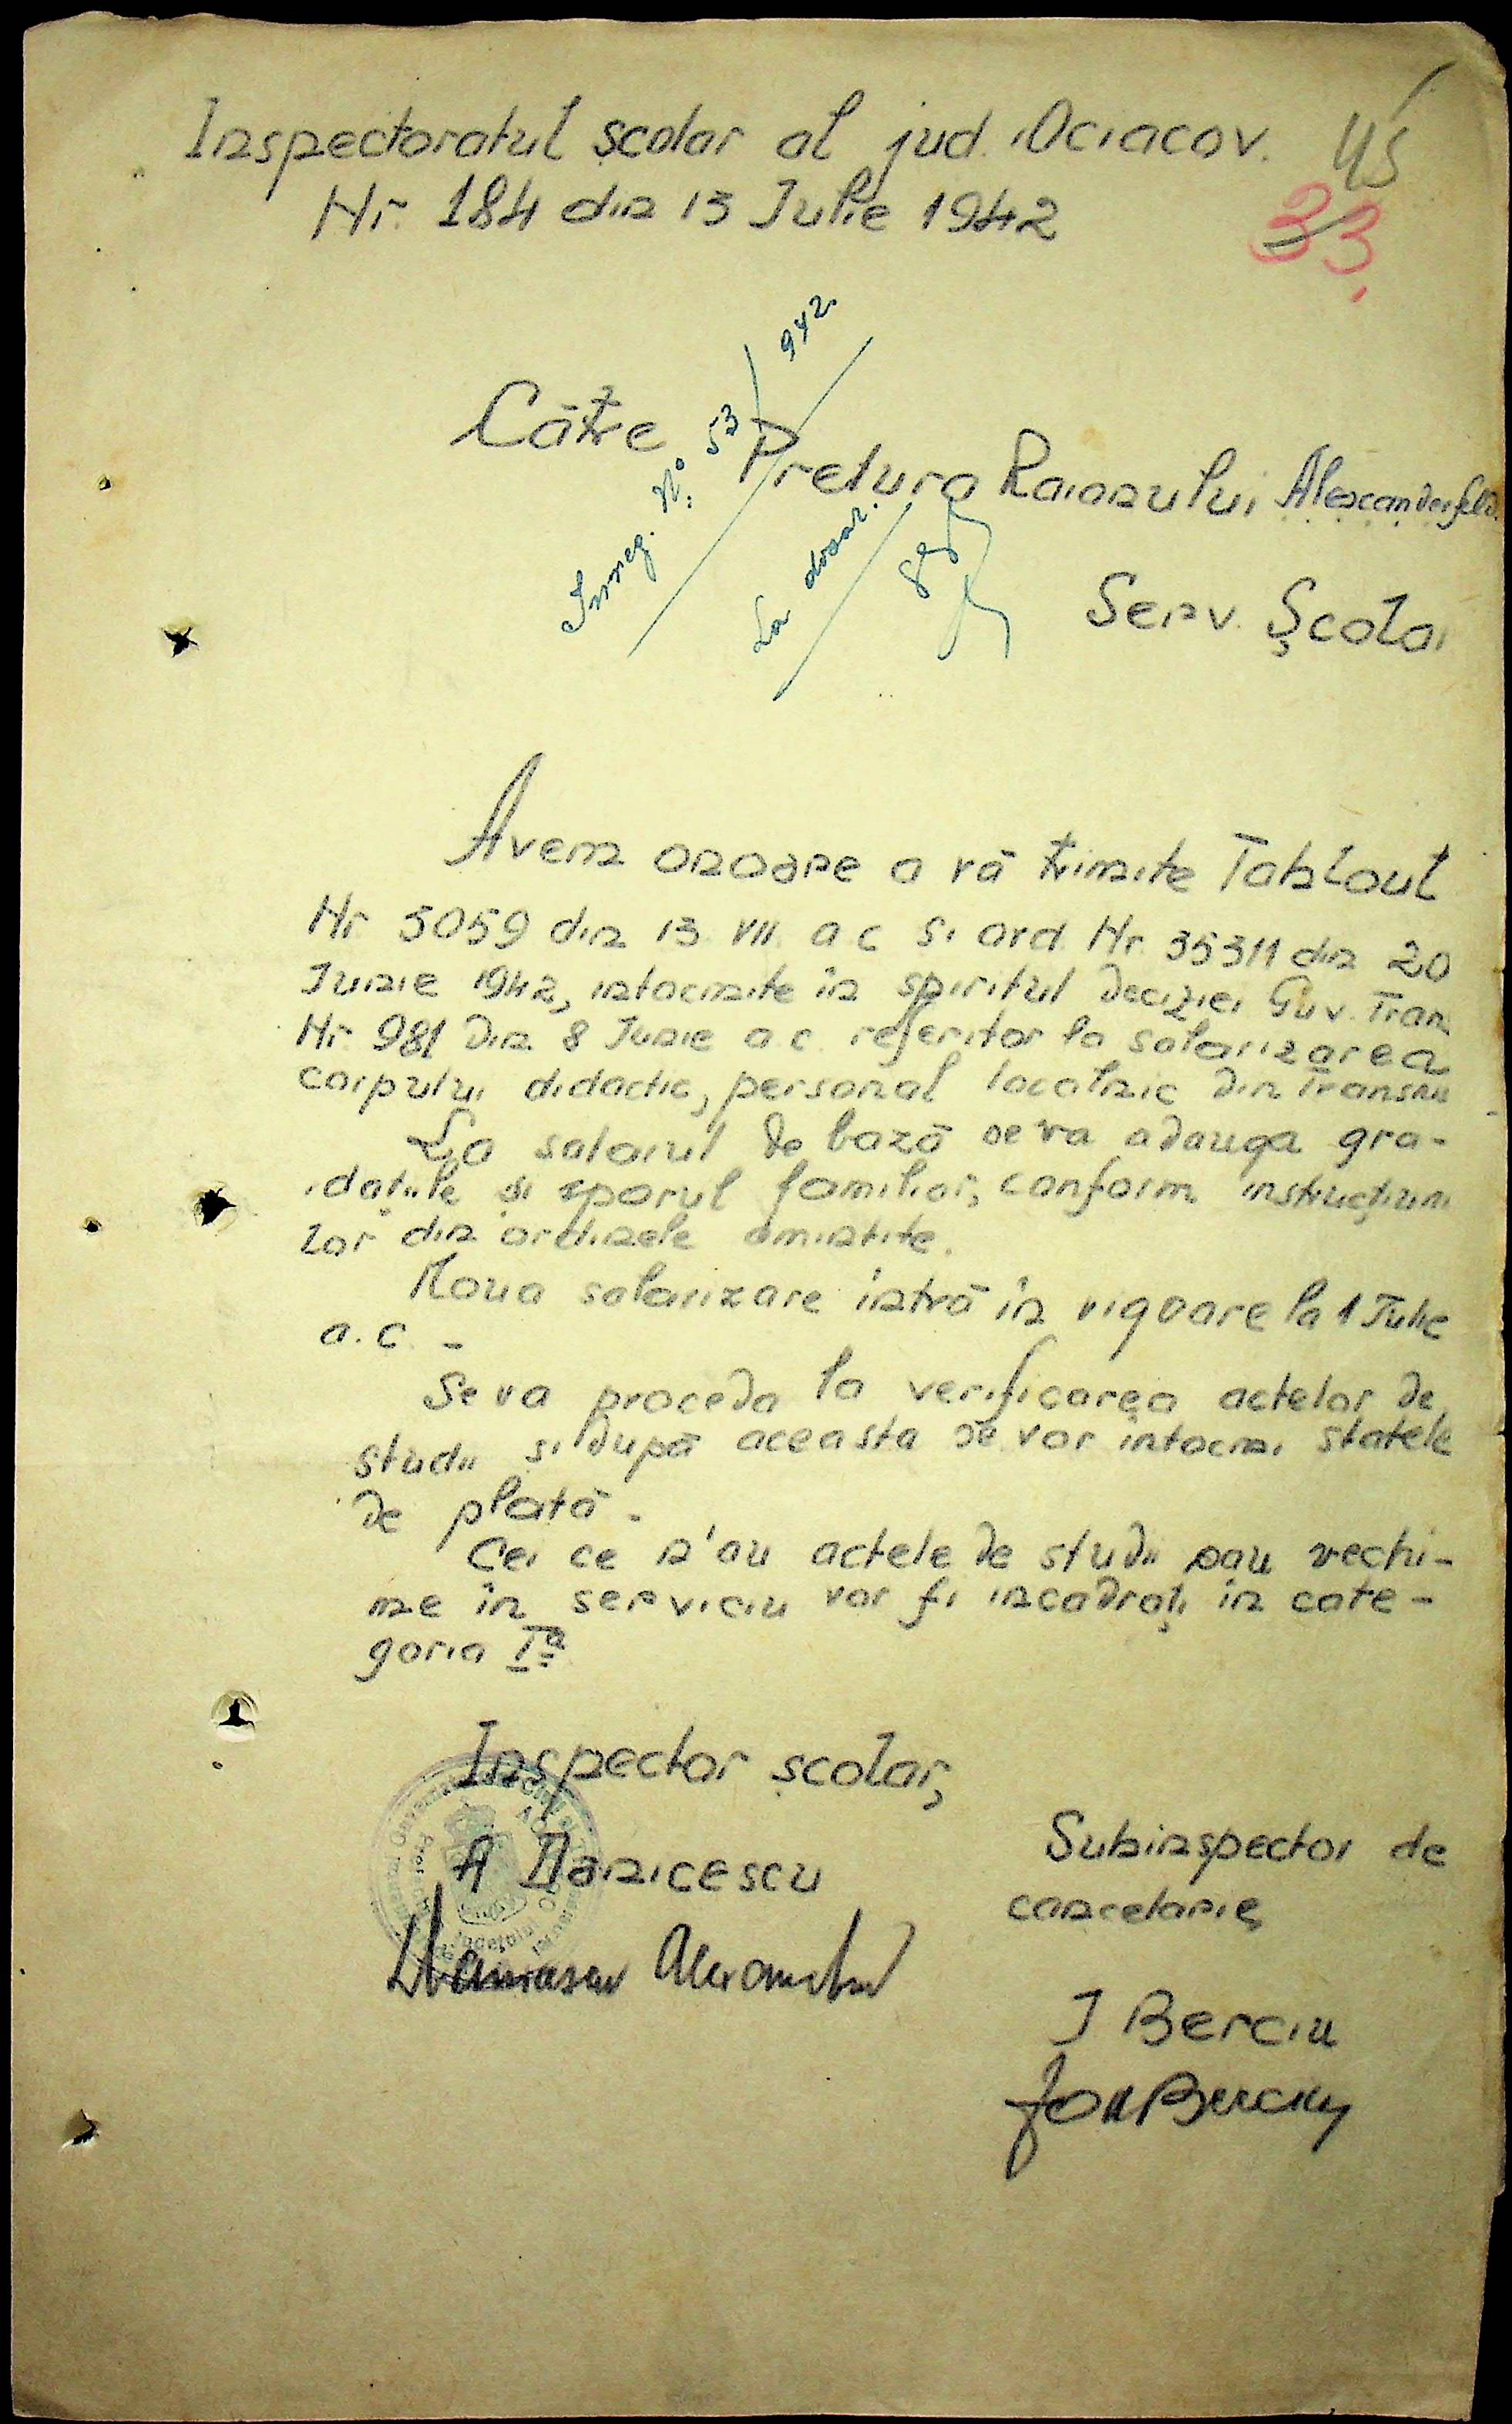 Inspectoratul școlar al jud. Ociacov.
45
Nr. 184 din 13 Iulie 1942
33.
Către
Pretura Raionului Alexanderfeld.
Inreg. No. 53/942.
La dosar.
Serv. Școlar
Avem onoare a vă trimite Tabloul
Nr 5059 din 13 VII a.c și ord. Nr. 35311 din 20
Iunie 1942, intocmite în spiritul deciziei Guv. Tran.
Nr. 981 din 8 Iunie a.c. referitor la salarizarea
corpului didactic, personal localnic din Transni
La salariul de bază se va adauga gra-
dațiile și sporul familiar, conform instrucțiuni
lor din ordinele amintite.
Noua salarizare intră în vigoare la 1 Iulie
a.c. -
Se va proceda la verificarea actelor de
studii și după aceasta se vor intocmi statele
de plată.
Cei ce n'au actele de studii sau vechi-
me în serviciu vor fi incadrați in cate-
goria Ia
Inspector școlar,
Subinspector de
cancelarie,
I Berciu
Ion Berciu